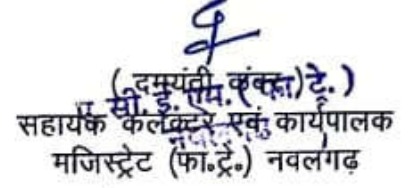 ( दमयंती कंवर )
ए. सी. ई. एम. ( फा. ट्रे. )
सहायक कलेक्टर एवं कार्यपालक
मजिस्ट्रेट (फा.ट्रे.) नवलगढ़